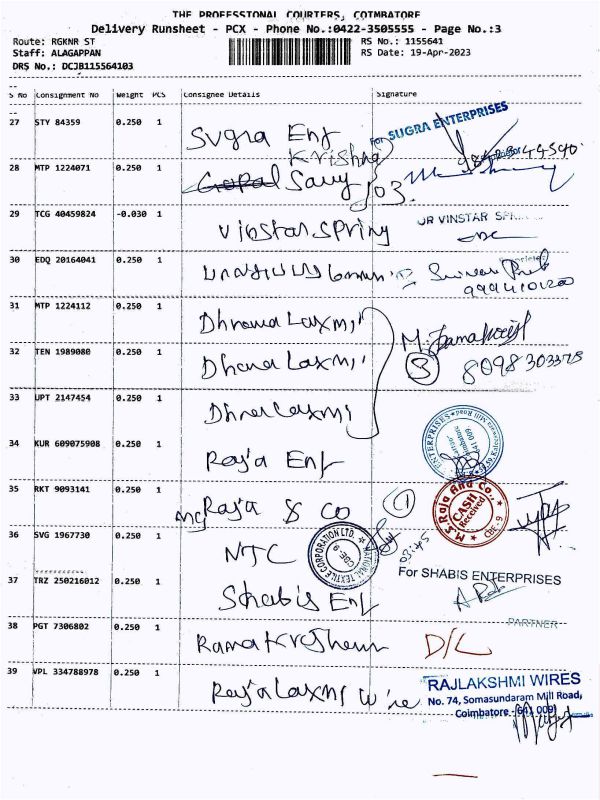 THE PROFESSTONAL COURTERS, COIMBATORE
Delivery Runsheet - PCX - Phone No.:0422-3505555 - Page No.:3
Route: RGKNR ST
RS No.: 1155641
Staff: ALAGAPPAN
RS Date: 19-Apr-2023
DRS No.: DCJB115564103
S No Consignment No Weight PCS Consignee Details Signature
27 STY 84359 0.250 1 Sugra Ent For SUGRA ENTERPRISES
Krishna
28 MTP 1224071 0.250 1 Gopal Samy 103.
29 TCG 40459824 -0.030 1 Vibstar Spring
OR VINSTAR
30 EDQ 20164041 0.250 1
31 MTP 1224112 0.250 1 Dhrana Laxmi
32 TEN 1989080 0.250 1 Dhana Laxmi 3 8098303378
33 UPT 2147454 0.250 1 Dhna Laxmi
ENTERPRISES
34 KUR 609075908 0.250 1 Raja Ent
35 RKT 9093141 0.250 1 Raja & Co 1
M.S. Raja And Co., CASH Received CBE - 9
36 SVG 1967730 0.250 1 NTC
NATIONAL TEXTILE CORPORATION LTD. CBE-9
03:45
37 TRZ 250216012 0.250 1 Shabis Ent
For SHABIS ENTERPRISES
PARTNER
38 PGT 7306802 0.250 1 Rama Krishnan D/L
39 VPL 334788978 0.250 1 Raja Laxmi Wire
RAJLAKSHMI WIRES
No. 74, Somasundaram Mill Road,
Coimbatore - 641 009